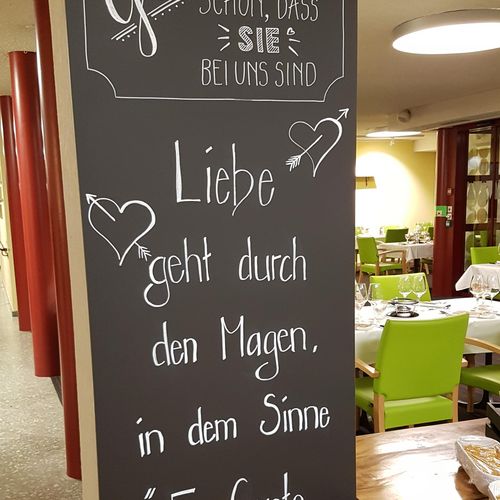 SCHÖN, DASS
SIE
BEI UNS SIND
Liebe
geht durch
den Magen,
in dem Sinne